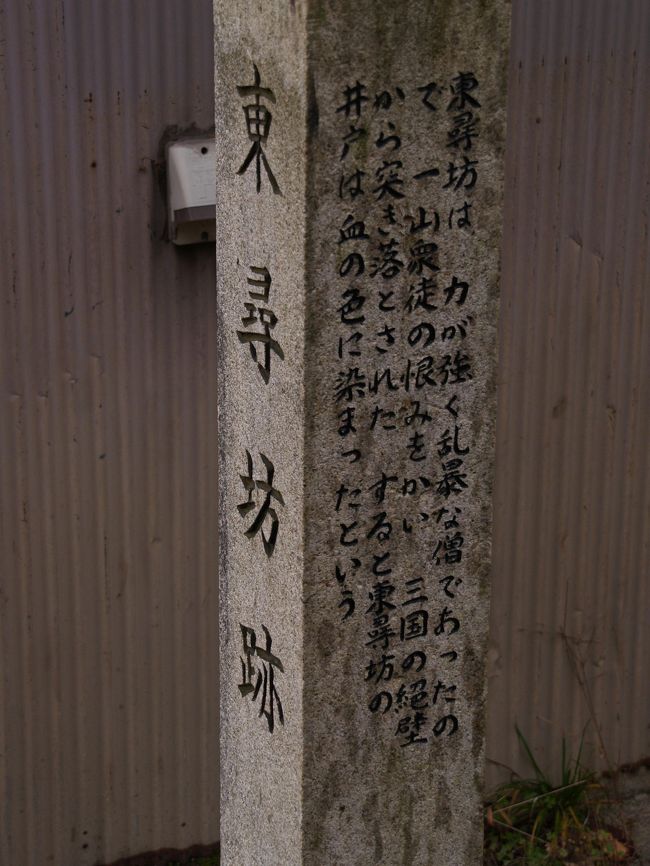 東尋坊跡
東尋坊は 力が強く乱暴な僧であったの
で 一山衆徒の恨みをかい 三国の絶壁
から突き落とされた すると東尋坊の
井戸は血の色に染まったという